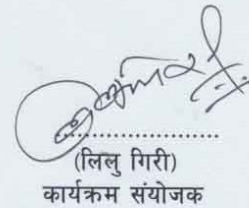 ....................
(लिलु गिरी)
कार्यक्रम संयोजक